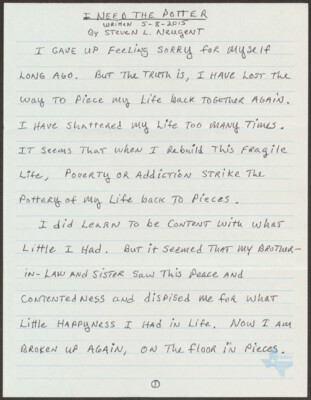 I NEED THE POTTER
WRITTEN 5-8-2015
By STEVEN L. NEUGENT
I GAVE UP FEELING SORRY FOR MYSELF
LONG AGO. BUT THE TRUTH IS, I HAVE LOST THE
WAY TO PIECE MY LIFE BACK TOGETHER AGAIN.
I HAVE SHATTERED MY LIFE TOO MANY TIMES.
IT SEEMS THAT WHEN I REBUILD THIS FRAGILE
LIFE, POVERTY OR ADDICTION STRIKE THE
POTTERY OF MY LIFE BACK TO PIECES.
I DID LEARN TO BE CONTENT WITH WHAT
LITTLE I HAD. BUT IT SEEMED THAT MY BROTHER-
IN-LAW AND SISTER SAW THIS PEACE AND
CONTENTEDNESS AND DISPISED ME FOR WHAT
LITTLE HAPPYNESS I HAD IN LIFE. NOW I AM
BROKEN UP AGAIN, ON THE FLOOR IN PIECES.
1